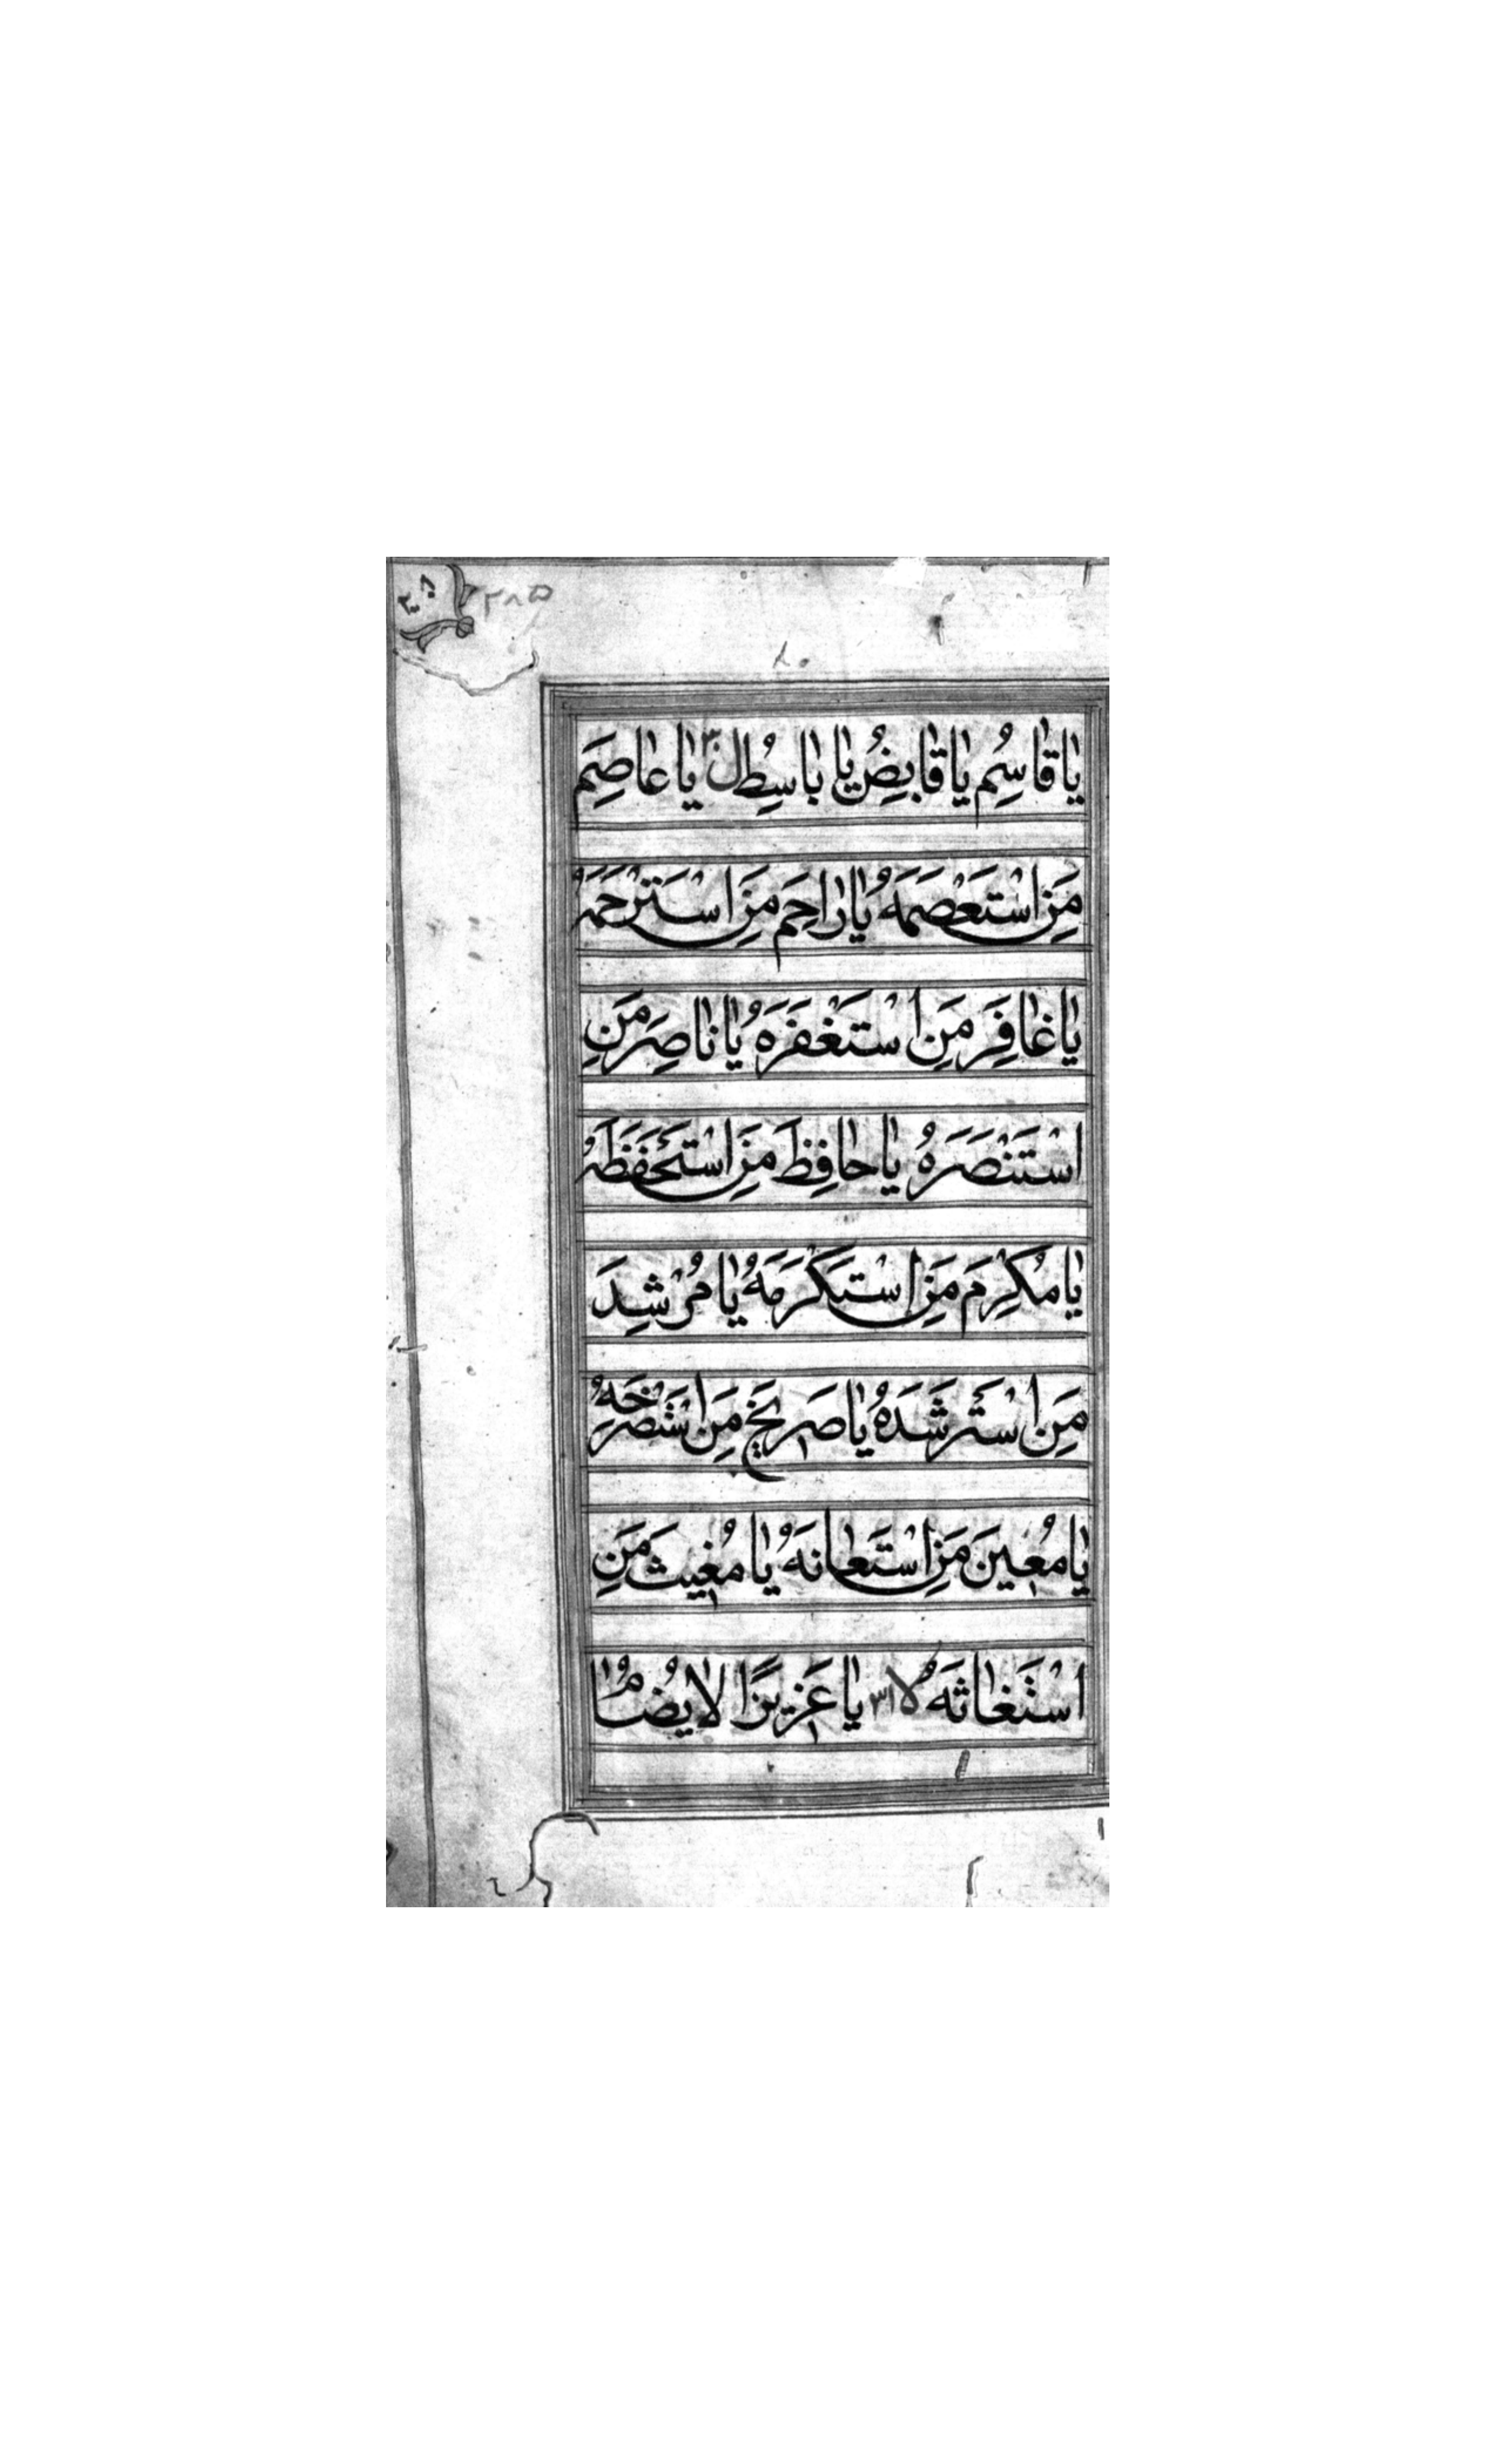 ٢٨٥
يا قاسِمُ يا قابِضُ يا باسِطُ ل٣٠ يا عاصِمَ
مَنِ اسْتَعْصَمَهُ يا راحِمَ مَنِ اسْتَرْحَمَهُ
يا غافِرَ مَنِ اسْتَغْفَرَهُ يا ناصِرَ مَنِ
اسْتَنْصَرَهُ يا حافِظَ مَنِ اسْتَحْفَظَهُ
يا مُكْرِمَ مَنِ اسْتَكْرَمَهُ يا مُرْشِدَ
مَنِ اسْتَرْشَدَهُ يا صَريخَ مَنِ اسْتَصْرَخَهُ
يا مُعينَ مَنِ اسْتَعانَهُ يا مُغيثَ مَنِ
اسْتَغاثَهُ لا٣١ يا عَزيزًا لا يُضامُ